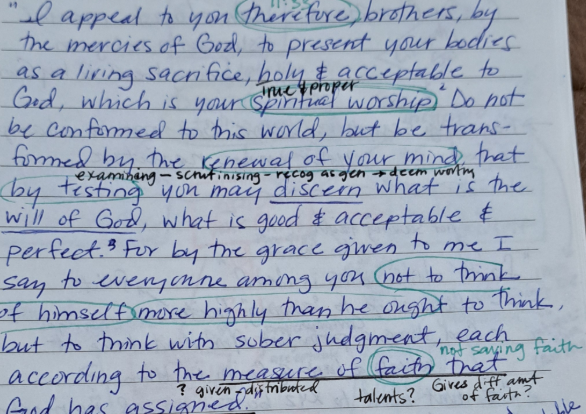 "I appeal to you therefore, brothers, by
the mercies of God, to present your bodies
as a living sacrifice, holy & acceptable to
true & proper
God, which is your spiritual worship. ² Do not
be conformed to this world, but be trans-
formed by the renewal of your mind, that
examining - scrutinising - recog as gen → deem worthy
by testing you may discern what is the
will of God, what is good & acceptable &
perfect. ³ For by the grace given to me I
say to everyone among you not to think
of himself more highly than he ought to think,
but to think with sober judgment, each
not saying faith
according to the measure of faith that
? given - distributed talents? Gives diff amt
of faith?
God has assigned.